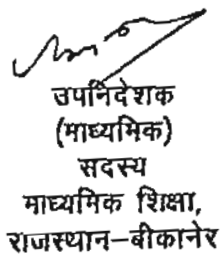 उपनिदेशक
(माध्यमिक)
सदस्य
माध्यमिक शिक्षा,
राजस्थान–बीकानेर